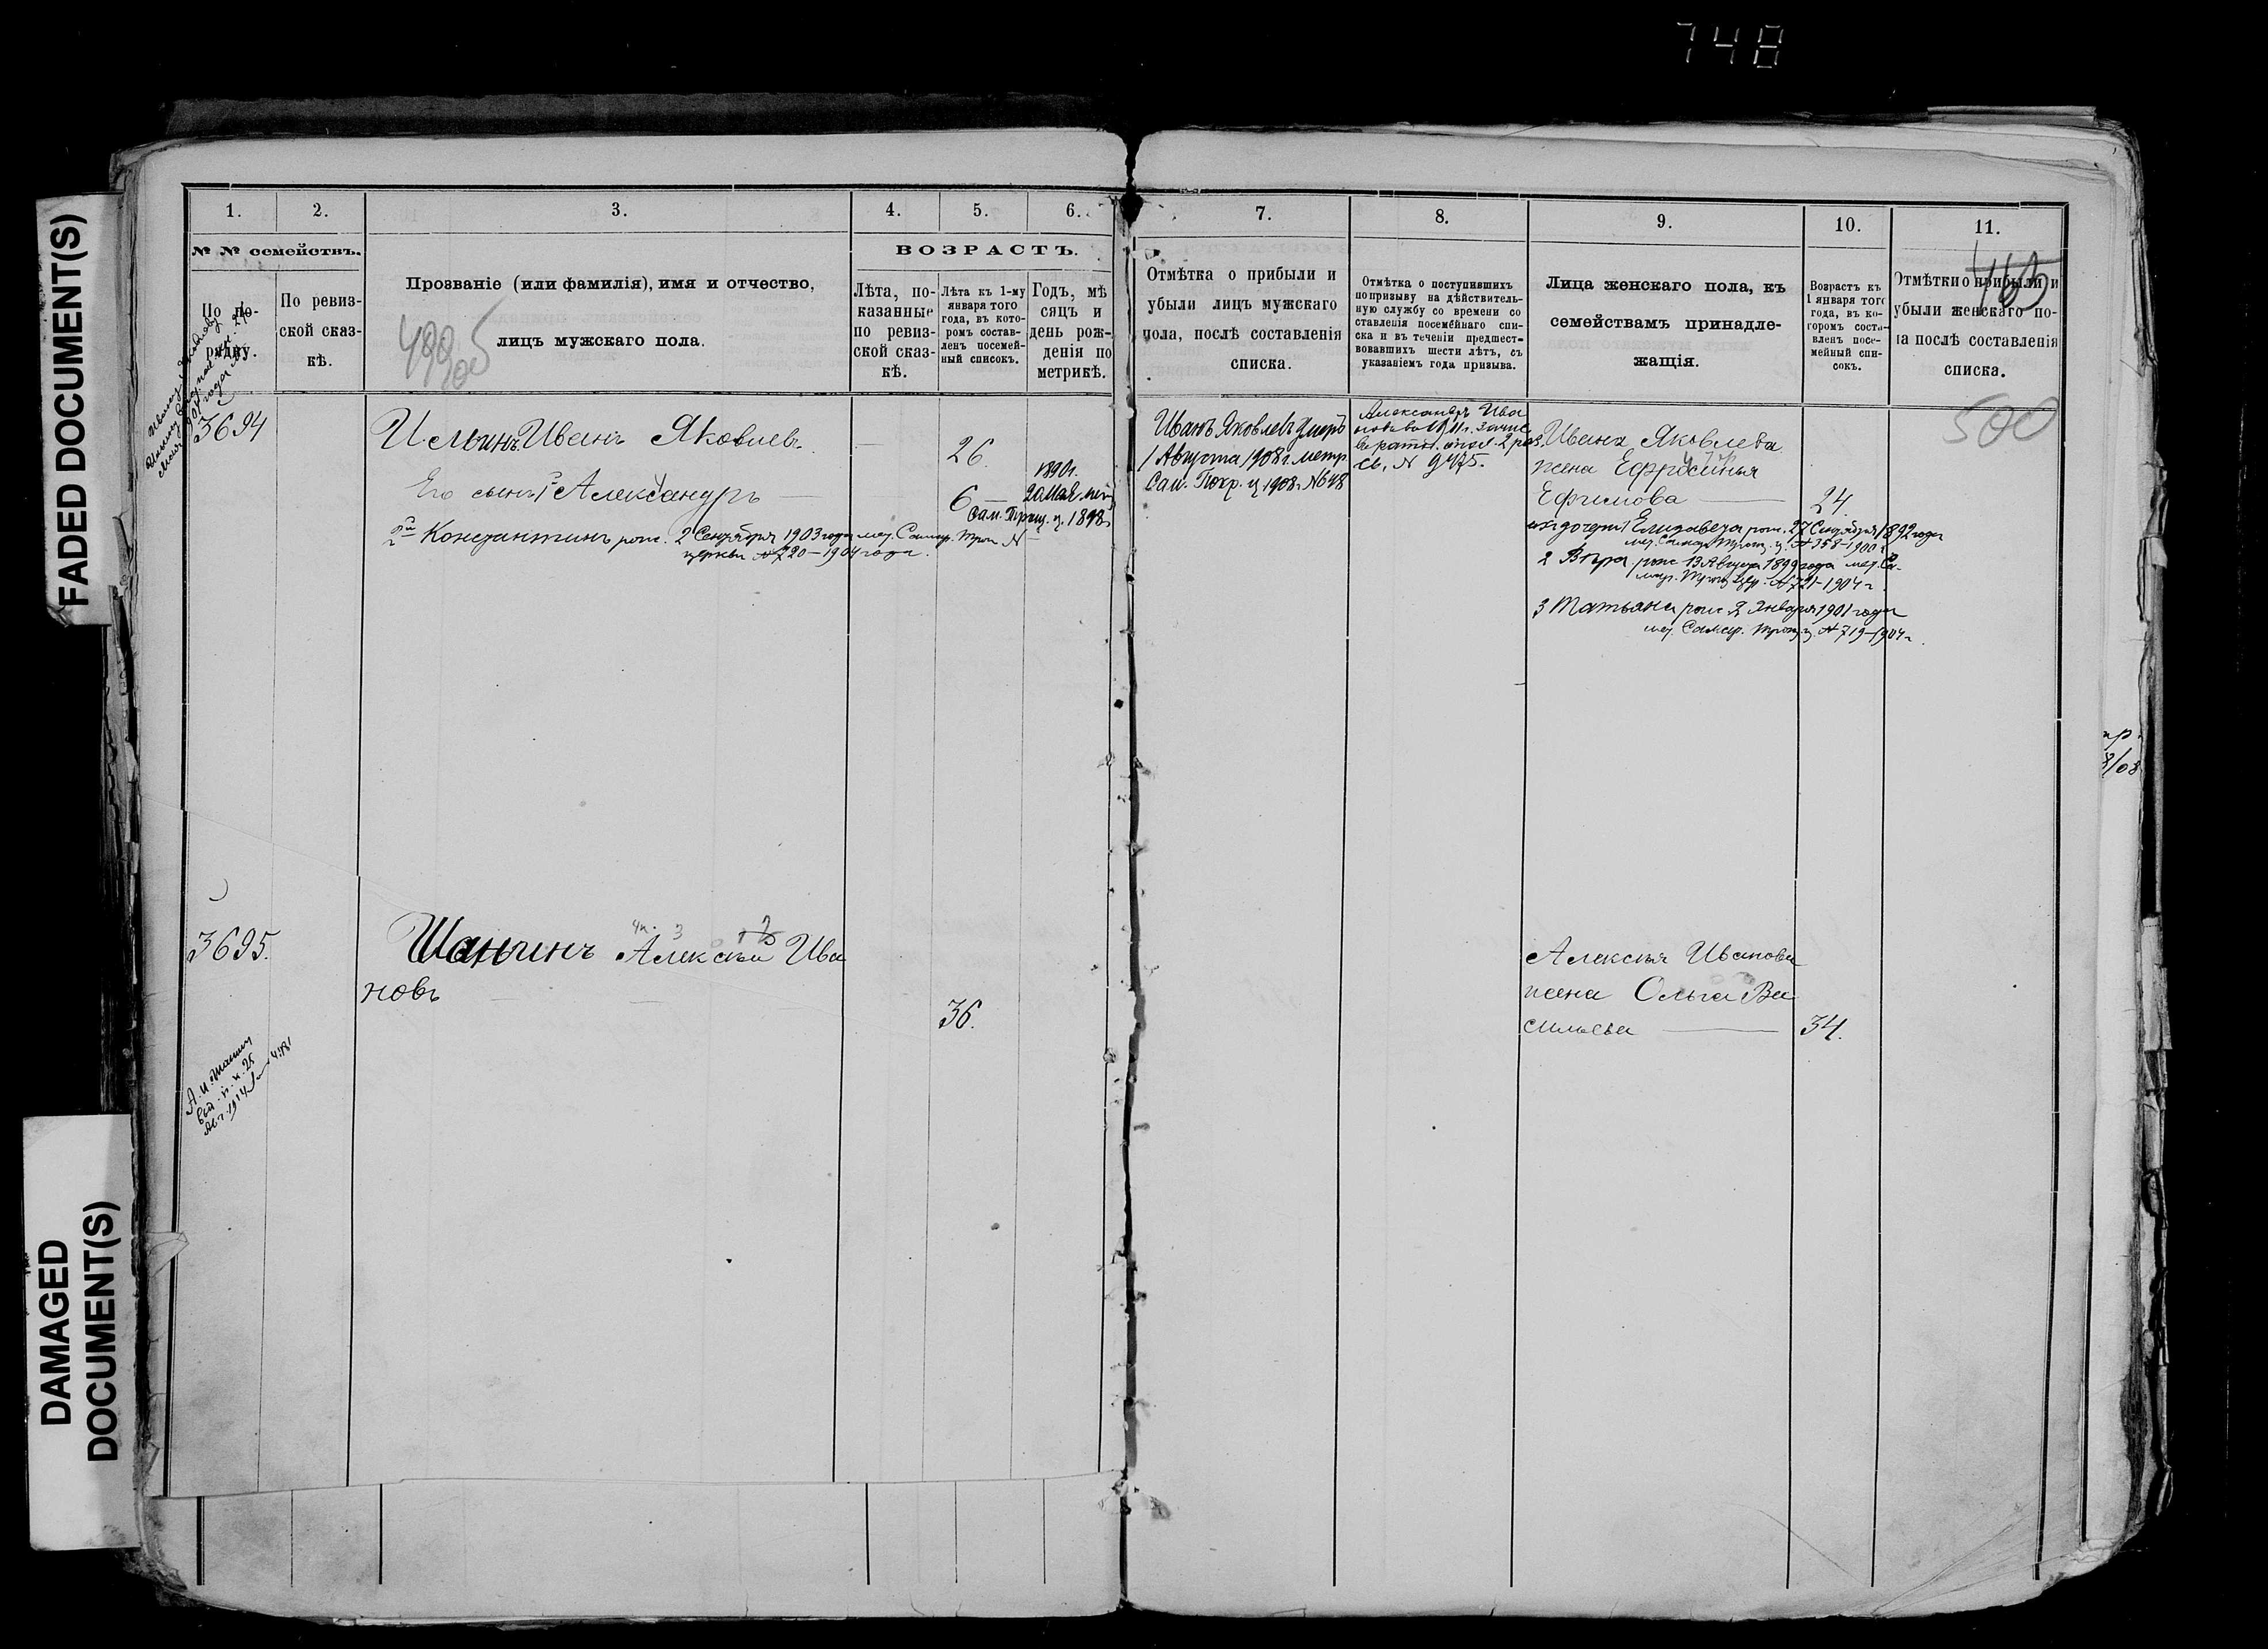 748
FADED DOCUMENT(S)
DAMAGED
DOCUMENT(S)
1.
2.
3.
4.
5.
6.
№ № семействъ.
По по-
рядку.
По ревиз-
ской сказ-
кѣ.
Прозваніе (или фамилія), имя и отчество,
лицъ мужскаго пола.
ВОЗРАСТЪ.
Лѣта, по-
казанные
по ревиз-
ской сказ-
кѣ.
Лѣта къ 1-му
января того
года, въ кото-
ромъ состав-
ленъ посемей-
ный списокъ.
Годъ, мѣ
сяцъ и
день рож-
денія по
метрикѣ.
3694
Ильинъ Иванъ Яковлевъ
26.
Его сынъ 1й Александръ
6
1890г.
20 Мая
Сам. Троиц. ц. 1898
2й Константинъ рож. 2 Сентября 1903 года мет. Самар. Троиц
церкви № 720—1904 года.
3695.
Шангинъ Алексѣй Ива
новъ
36.
7.
8.
9.
10.
11.
Отмѣтка о прибыли и
убыли лицъ мужскаго
пола, послѣ составленія
списка.
Отмѣтка о поступившихъ
по призыву на дѣйствитель-
ную службу со времени со
ставленія посемейнаго спи-
ска и въ теченіи предшест-
вовавшихъ шести лѣтъ, съ
указаніемъ года призыва.
Лица женскаго пола, къ
семействамъ принадле-
жащія.
Возрастъ къ
1 января того
года, въ ко-
торомъ соста-
вленъ посе-
мейный спи-
сокъ.
Отмѣтки о прибыли и
убыли женскаго по-
ла послѣ составленія
списка.
500
Иванъ Яковлевъ умеръ
1 Августа 1908 г. метр.
Сам. Покр. ц. 1908 г. № 648
Александръ Ива
новъ въ 1911 г. зачис
въ ратн. опол. 2 раз
св. № 9475.
Ивана Яковлева
жена Ефросинья
Ефимова
24.
ихъ дочери 1 Елизавета рож. 27 Сентября 1892 года
мет. Самар. Троиц. ц. № 358—1900 г.
2 Вѣра рож 13 Августа 1899 года мет. Са-
мар. Троиц. цер. № 721—1904 г.
3 Татьяна рож 2 Января 1901 года
мет. Самар. Троиц. ц. № 719—1904 г.
Алексѣя Иванова
жена Ольга Ва
сильева
34.